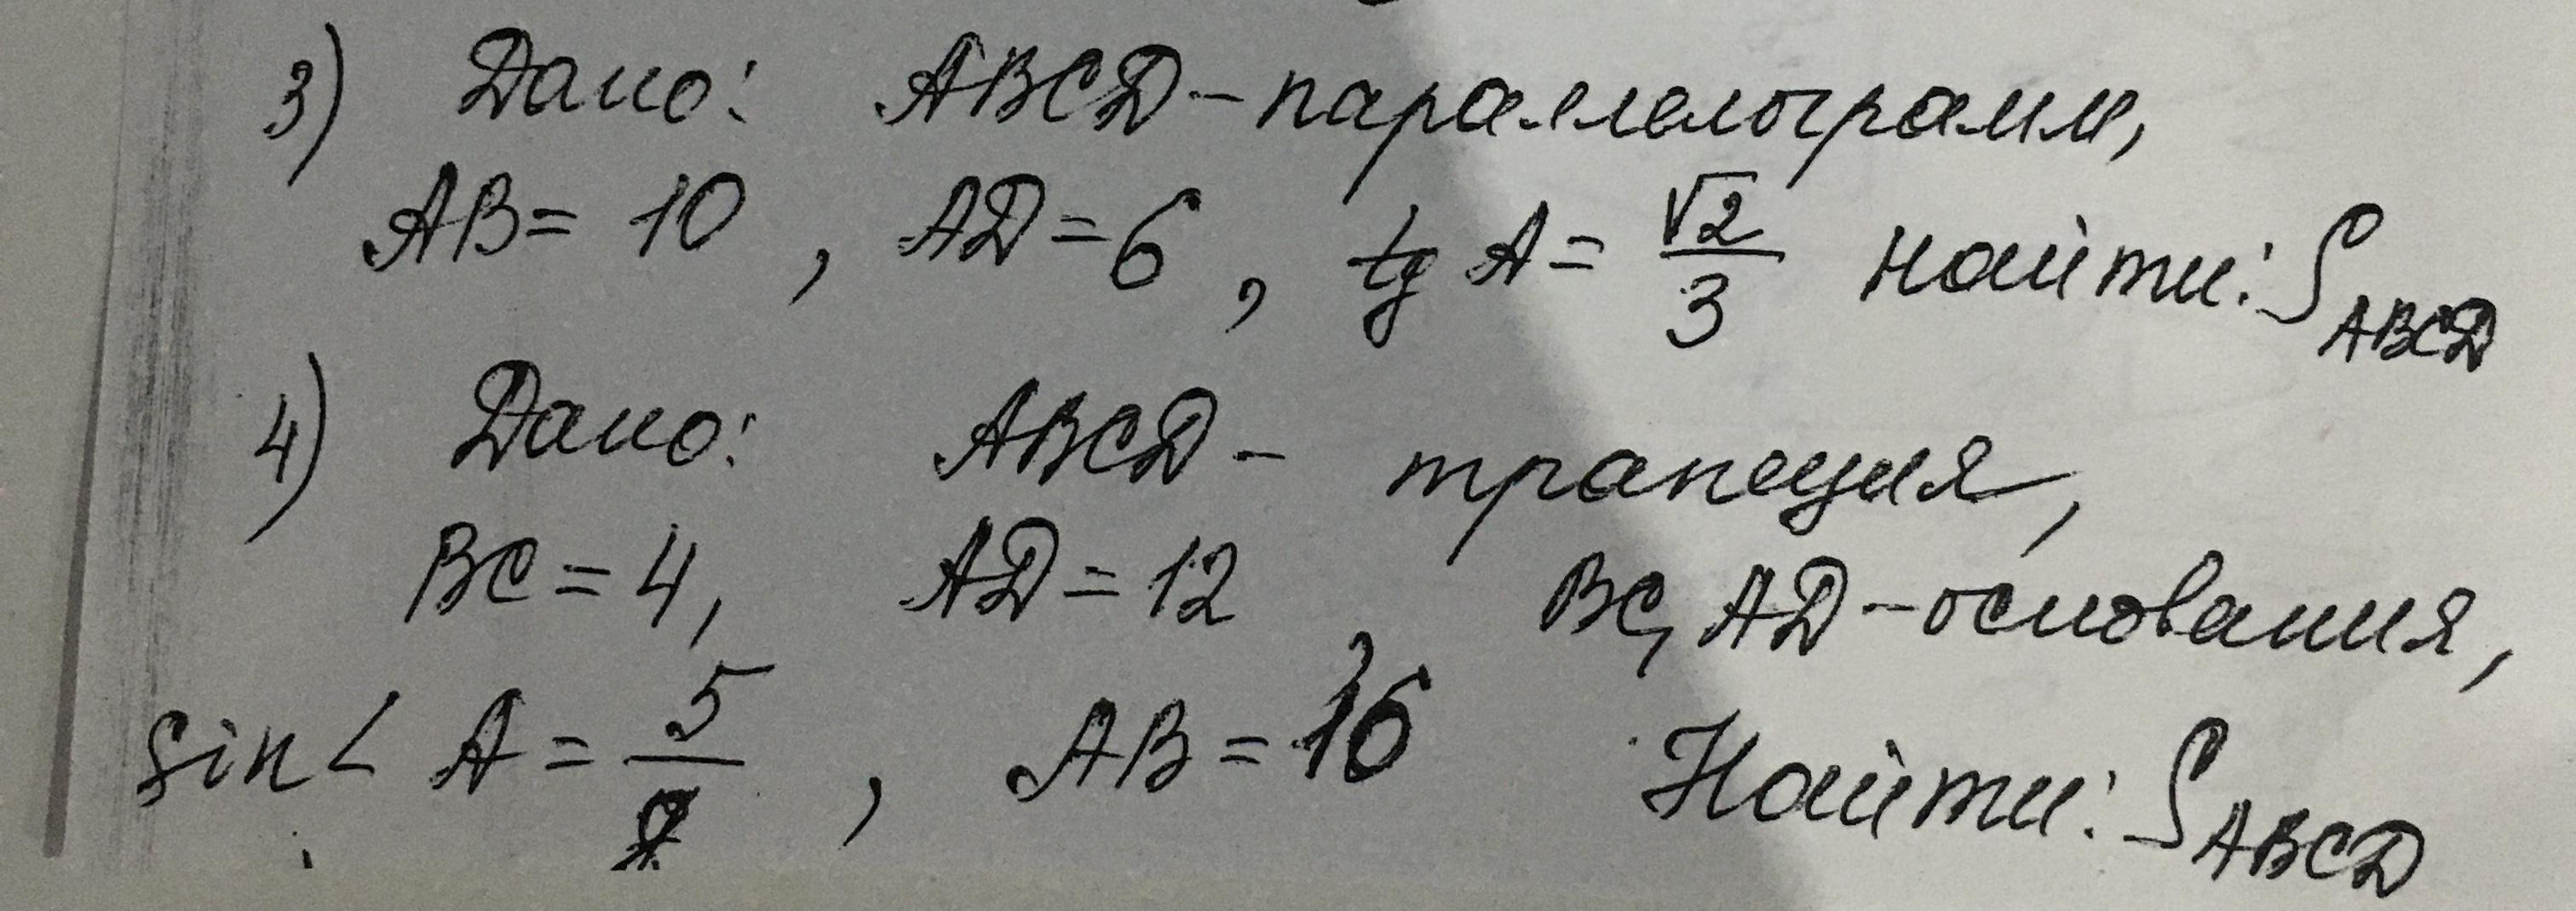 3) Дано: ABCD - параллелограмм,
AB = 10, AD = 6, tg A = √2/3 найти: S ABCD
4) Дано: ABCD - трапеция,
BC = 4, AD = 12, BC, AD - основания,
sin < A = 5/ , AB = 16 Найти: S ABCD